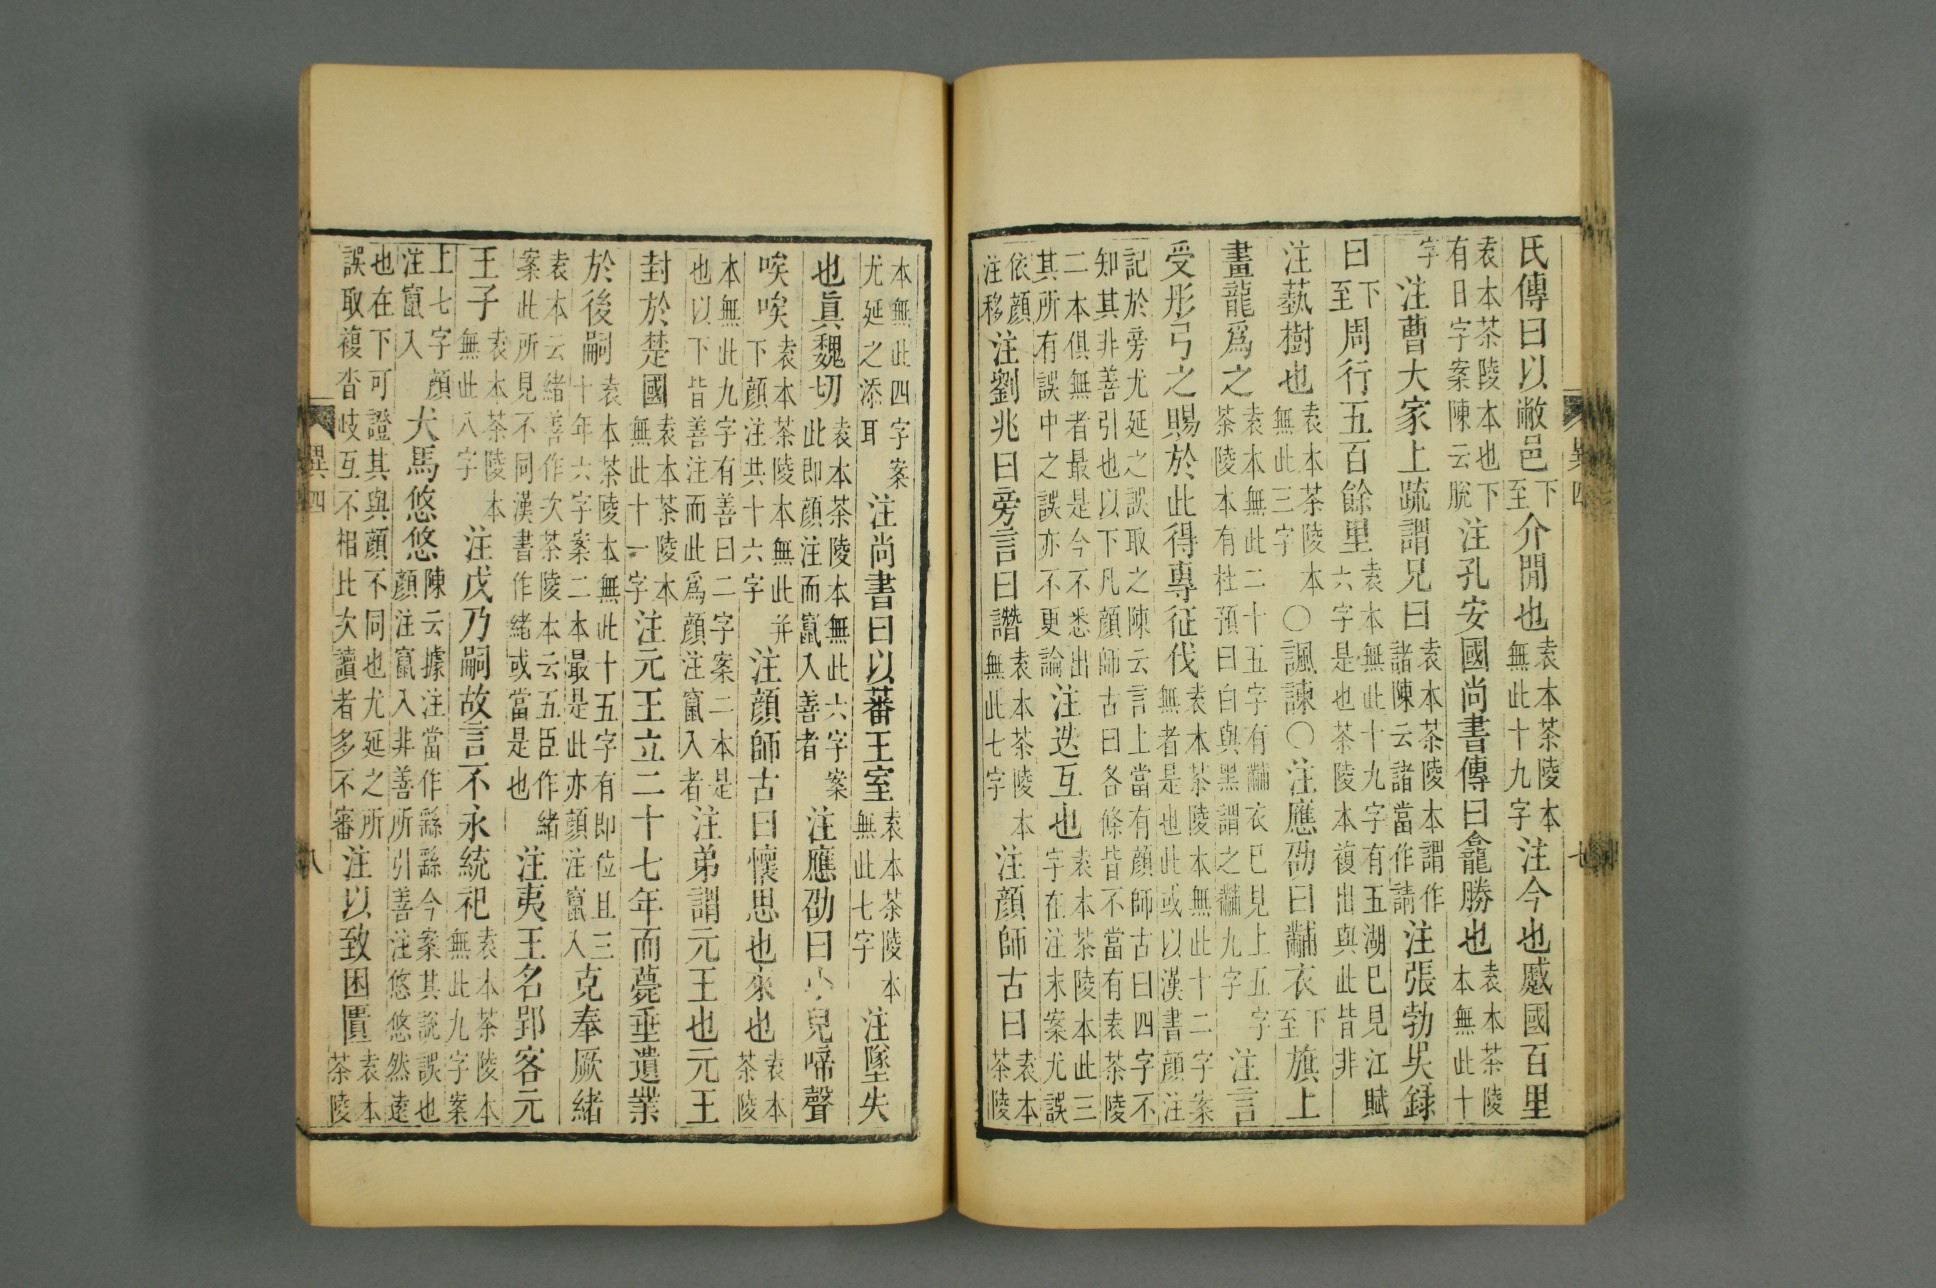 氏傳曰以敝邑下至介閒也袁本茶陵本無此十九字注今也蹙國百里
袁本茶陵本也下有日字案陳云脫注孔安國尚書傳曰龕勝也袁本茶陵本無此十
字注曹大家上疏謂兄曰袁本茶陵本謂作諸陳云諸當作請注張勃吳録
曰下至周行五百餘里袁本無此十九字有五湖已見江賦六字是也茶陵本複出與此皆非
注蓺樹也袁本茶陵本無此三字〇諷諫〇注應劭曰黼衣下至旗上
畫龍爲之袁本無此二十五字有黼衣已見上五字茶陵本有杜預曰白與黑謂之黼九字注言
受彤弓之賜於此得專征伐袁本茶陵本無此十二字案無者是也此或以漢書顏注
記於旁尤延之誤取之陳云言上當有顏師古曰四字不知其非善引也以下凡顏師古曰各條皆不當有袁茶陵
二本俱無者最是今不悉出其所有誤中之誤亦不更論注迭互也袁本茶陵本此三字在注末案尤誤
依顏注移注劉兆曰旁言曰譖袁本茶陵本無此七字注顏師古曰袁本茶陵
異四
七
本無此四字案尤延之添耳注尚書曰以蕃王室袁本茶陵本無此七字注墜失
也眞魏切袁本茶陵本無此六字案此即顏注而竄入善者注應劭曰小兒啼聲
唉唉袁本茶陵本無此并下顏注共十六字注顏師古曰懷思也來也袁本茶陵
本無此九字有善曰二字案二本是也以下皆善注而此爲顏注竄入者注弟謂元王也元王
封於楚國袁本茶陵本無此十一字注元王立二十七年而薨垂遺業
於後嗣袁本茶陵本無此十五字有即位且三十年六字案二本最是此亦顏注竄入克奉厥緒
袁本云緒善作次茶陵本云五臣作緒案此所見不同漢書作緒或當是也注夷王名郢客元
王子袁本茶陵本無此八字注戊乃嗣故言不永統祀袁本茶陵本無此九字案
上七字顏注竄入犬馬悠悠陳云據注當作繇繇今案其說誤也顏注竄入非善所引善注悠悠然遠
也在下可證其與顏不同也尤延之所誤取複沓歧互不相比次讀者多不審注以致困匱袁本茶陵
異四
八